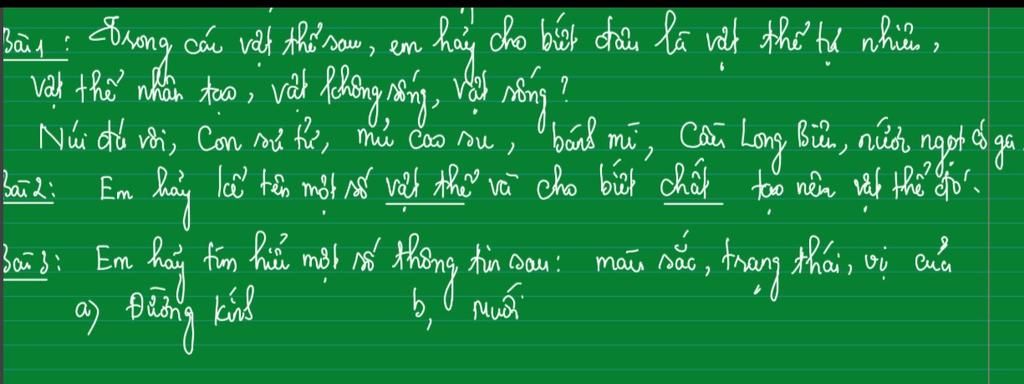 Bài 1: Trong các vật thể sau, em hãy cho biết đâu là vật thể tự nhiên,
vật thể nhân tạo, vật không sống, vật sống?
Núi đá vôi, Con sư tử, mủ cao su, bánh mì, Cầu Long Biên, nước ngọt có ga.
Bài 2: Em hãy kể tên một số vật thể và cho biết chất tạo nên vật thể đó.
Bài 3: Em hãy tìm hiểu một số thông tin sau: màu sắc, trạng thái, vị của
a) Đường kính b, Muối